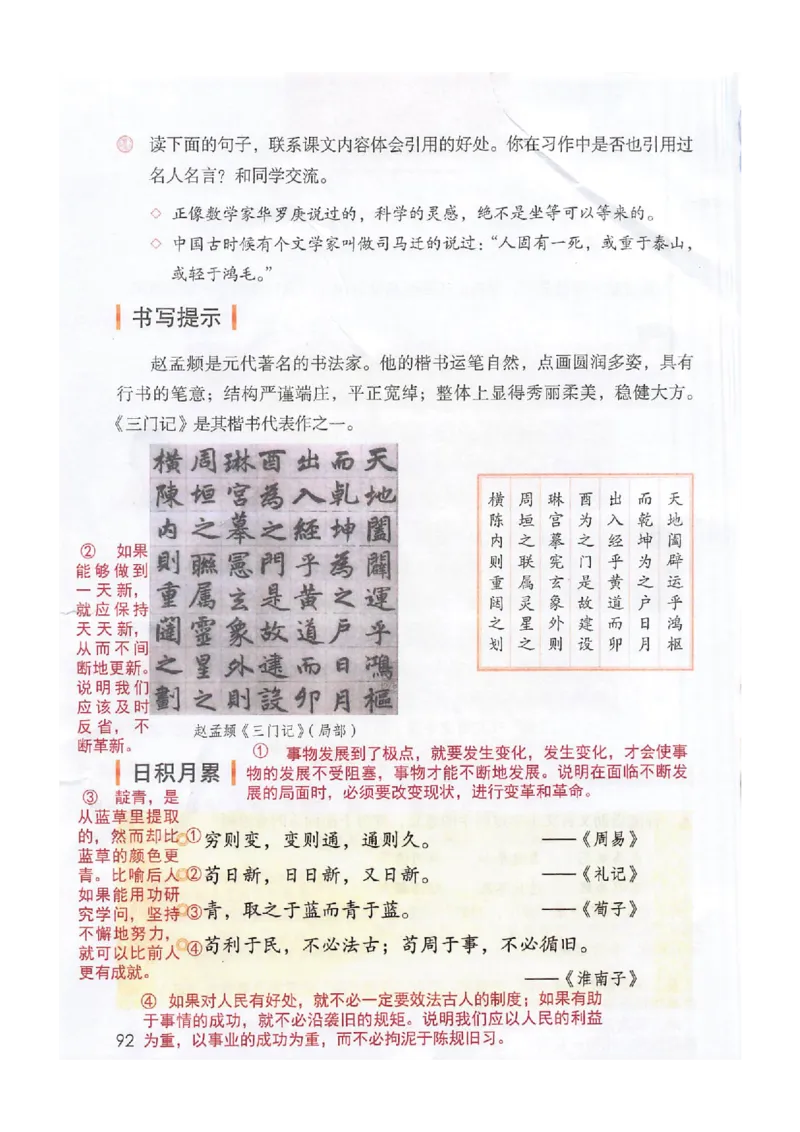 读下面的句子，联系课文内容体会引用的好处。你在习作中是否也引用过
名人名言？和同学交流。
◇ 正像数学家华罗庚说过的，科学的灵感，绝不是坐等可以等来的。
◇ 中国古时候有个文学家叫做司马迁的说过：“人固有一死，或重于泰山，
或轻于鸿毛。”
书写提示
赵孟𫖯是元代著名的书法家。他的楷书运笔自然，点画圆润多姿，具有
行书的笔意；结构严谨端庄，平正宽绰；整体上显得秀丽柔美，稳健大方。
《三门记》是其楷书代表作之一。
天地闔闢運乎鴻樞
而乹坤為之户日月
出入經乎黄道而卯
酉為之門是故建設
琳宫摹憲玄象外則
周垣之聮属靈星之
横陳内則重闥之劃
天地阖辟运乎鸿枢
而乾坤为之户日月
出入经乎黄道而卯
酉为之门是故建设
琳宫摹宪玄象外则
周垣之联属灵星之
横陈内则重闼之划
赵孟𫖯《三门记》（局部）
② 如果
能够做到
一天新，
就应保持
天天新，
从而不间
断地更新。
说明我们
应该及时
反省，不
断革新。
① 事物发展到了极点，就要发生变化，发生变化，才会使事
物的发展不受阻塞，事物才能不断地发展。说明在面临不断发
展的局面时，必须要改变现状，进行变革和革命。
日积月累
③ 靛青，是
从蓝草里提取
的，然而却比
蓝草的颜色更
青。比喻后人
如果能用功研
究学问，坚持
不懈地努力，
就可以比前人
更有成就。
①穷则变，变则通，通则久。 ——《周易》
②苟日新，日日新，又日新。 ——《礼记》
③青，取之于蓝而青于蓝。 ——《荀子》
④苟利于民，不必法古；苟周于事，不必循旧。
——《淮南子》
④ 如果对人民有好处，就不必一定要效法古人的制度；如果有助
于事情的成功，就不必沿袭旧的规矩。说明我们应以人民的利益
为重，以事业的成功为重，而不必拘泥于陈规旧习。
92